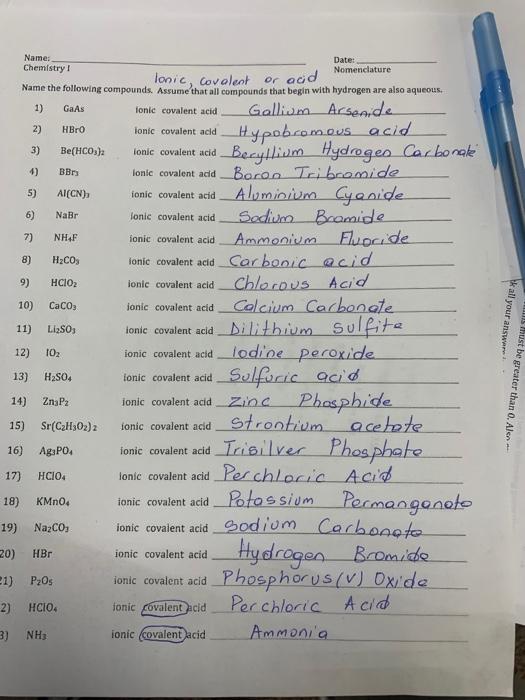 Name:
Date:
Chemistry I
Nomenclature
Ionic, covalent or acid
Name the following compounds. Assume that all compounds that begin with hydrogen are also aqueous.
1) GaAs ionic covalent acid Gallium Arsenide
2) HBrO ionic covalent acid Hypobromous acid
3) Be(HCO₃)₂ ionic covalent acid Beryllium Hydrogen Carbonate
4) BBr₃ ionic covalent acid Boron Tribromide
5) Al(CN)₃ ionic covalent acid Aluminium Cyanide
6) NaBr ionic covalent acid Sodium Bromide
7) NH₄F ionic covalent acid Ammonium Fluoride
8) H₂CO₃ ionic covalent acid Carbonic acid
9) HClO₂ ionic covalent acid Chlorous Acid
10) CaCO₃ ionic covalent acid Calcium Carbonate
11) Li₂SO₃ ionic covalent acid Dilithium Sulfite
12) IO₂ ionic covalent acid Iodine peroxide
13) H₂SO₄ ionic covalent acid Sulfuric acid
14) Zn₃P₂ ionic covalent acid Zinc Phosphide
15) Sr(C₂H₃O₂)₂ ionic covalent acid Strontium acetate
16) Ag₃PO₄ ionic covalent acid Trisilver Phosphate
17) HClO₄ ionic covalent acid Perchloric Acid
18) KMnO₄ ionic covalent acid Potassium Permanganate
19) Na₂CO₃ ionic covalent acid Sodium Carbonate
20) HBr ionic covalent acid Hydrogen Bromide
21) P₂O₅ ionic covalent acid Phosphorus (V) Oxide
2) HClO₄ ionic covalent acid Perchloric Acid
3) NH₃ ionic covalent acid Ammonia
must be greater than 0. Also
all your answers